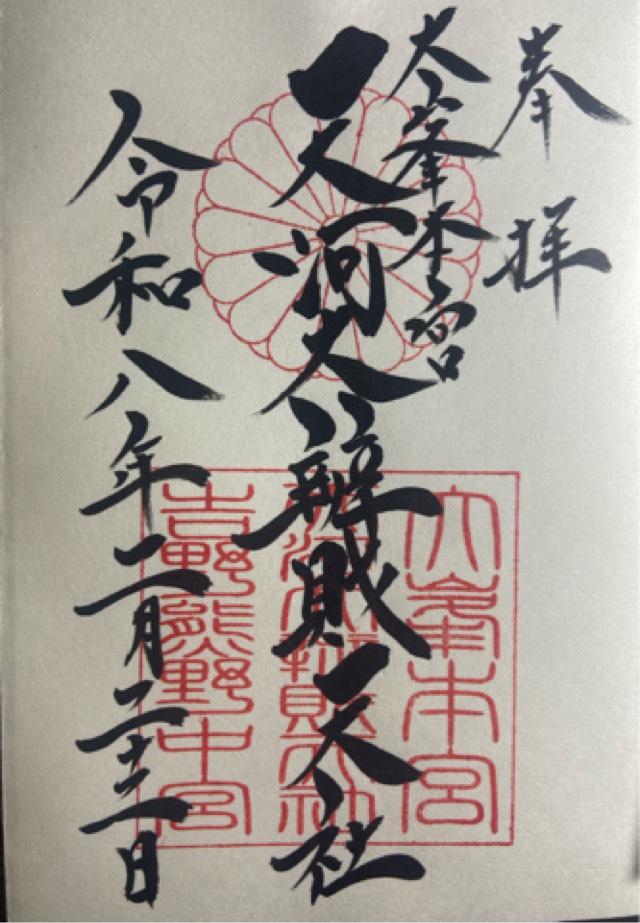 奉拝
大峯本宮
天河大辨財天社
令和八年二月二十二日
大峯本宮
天河大辨財天社
吉野熊野中宮